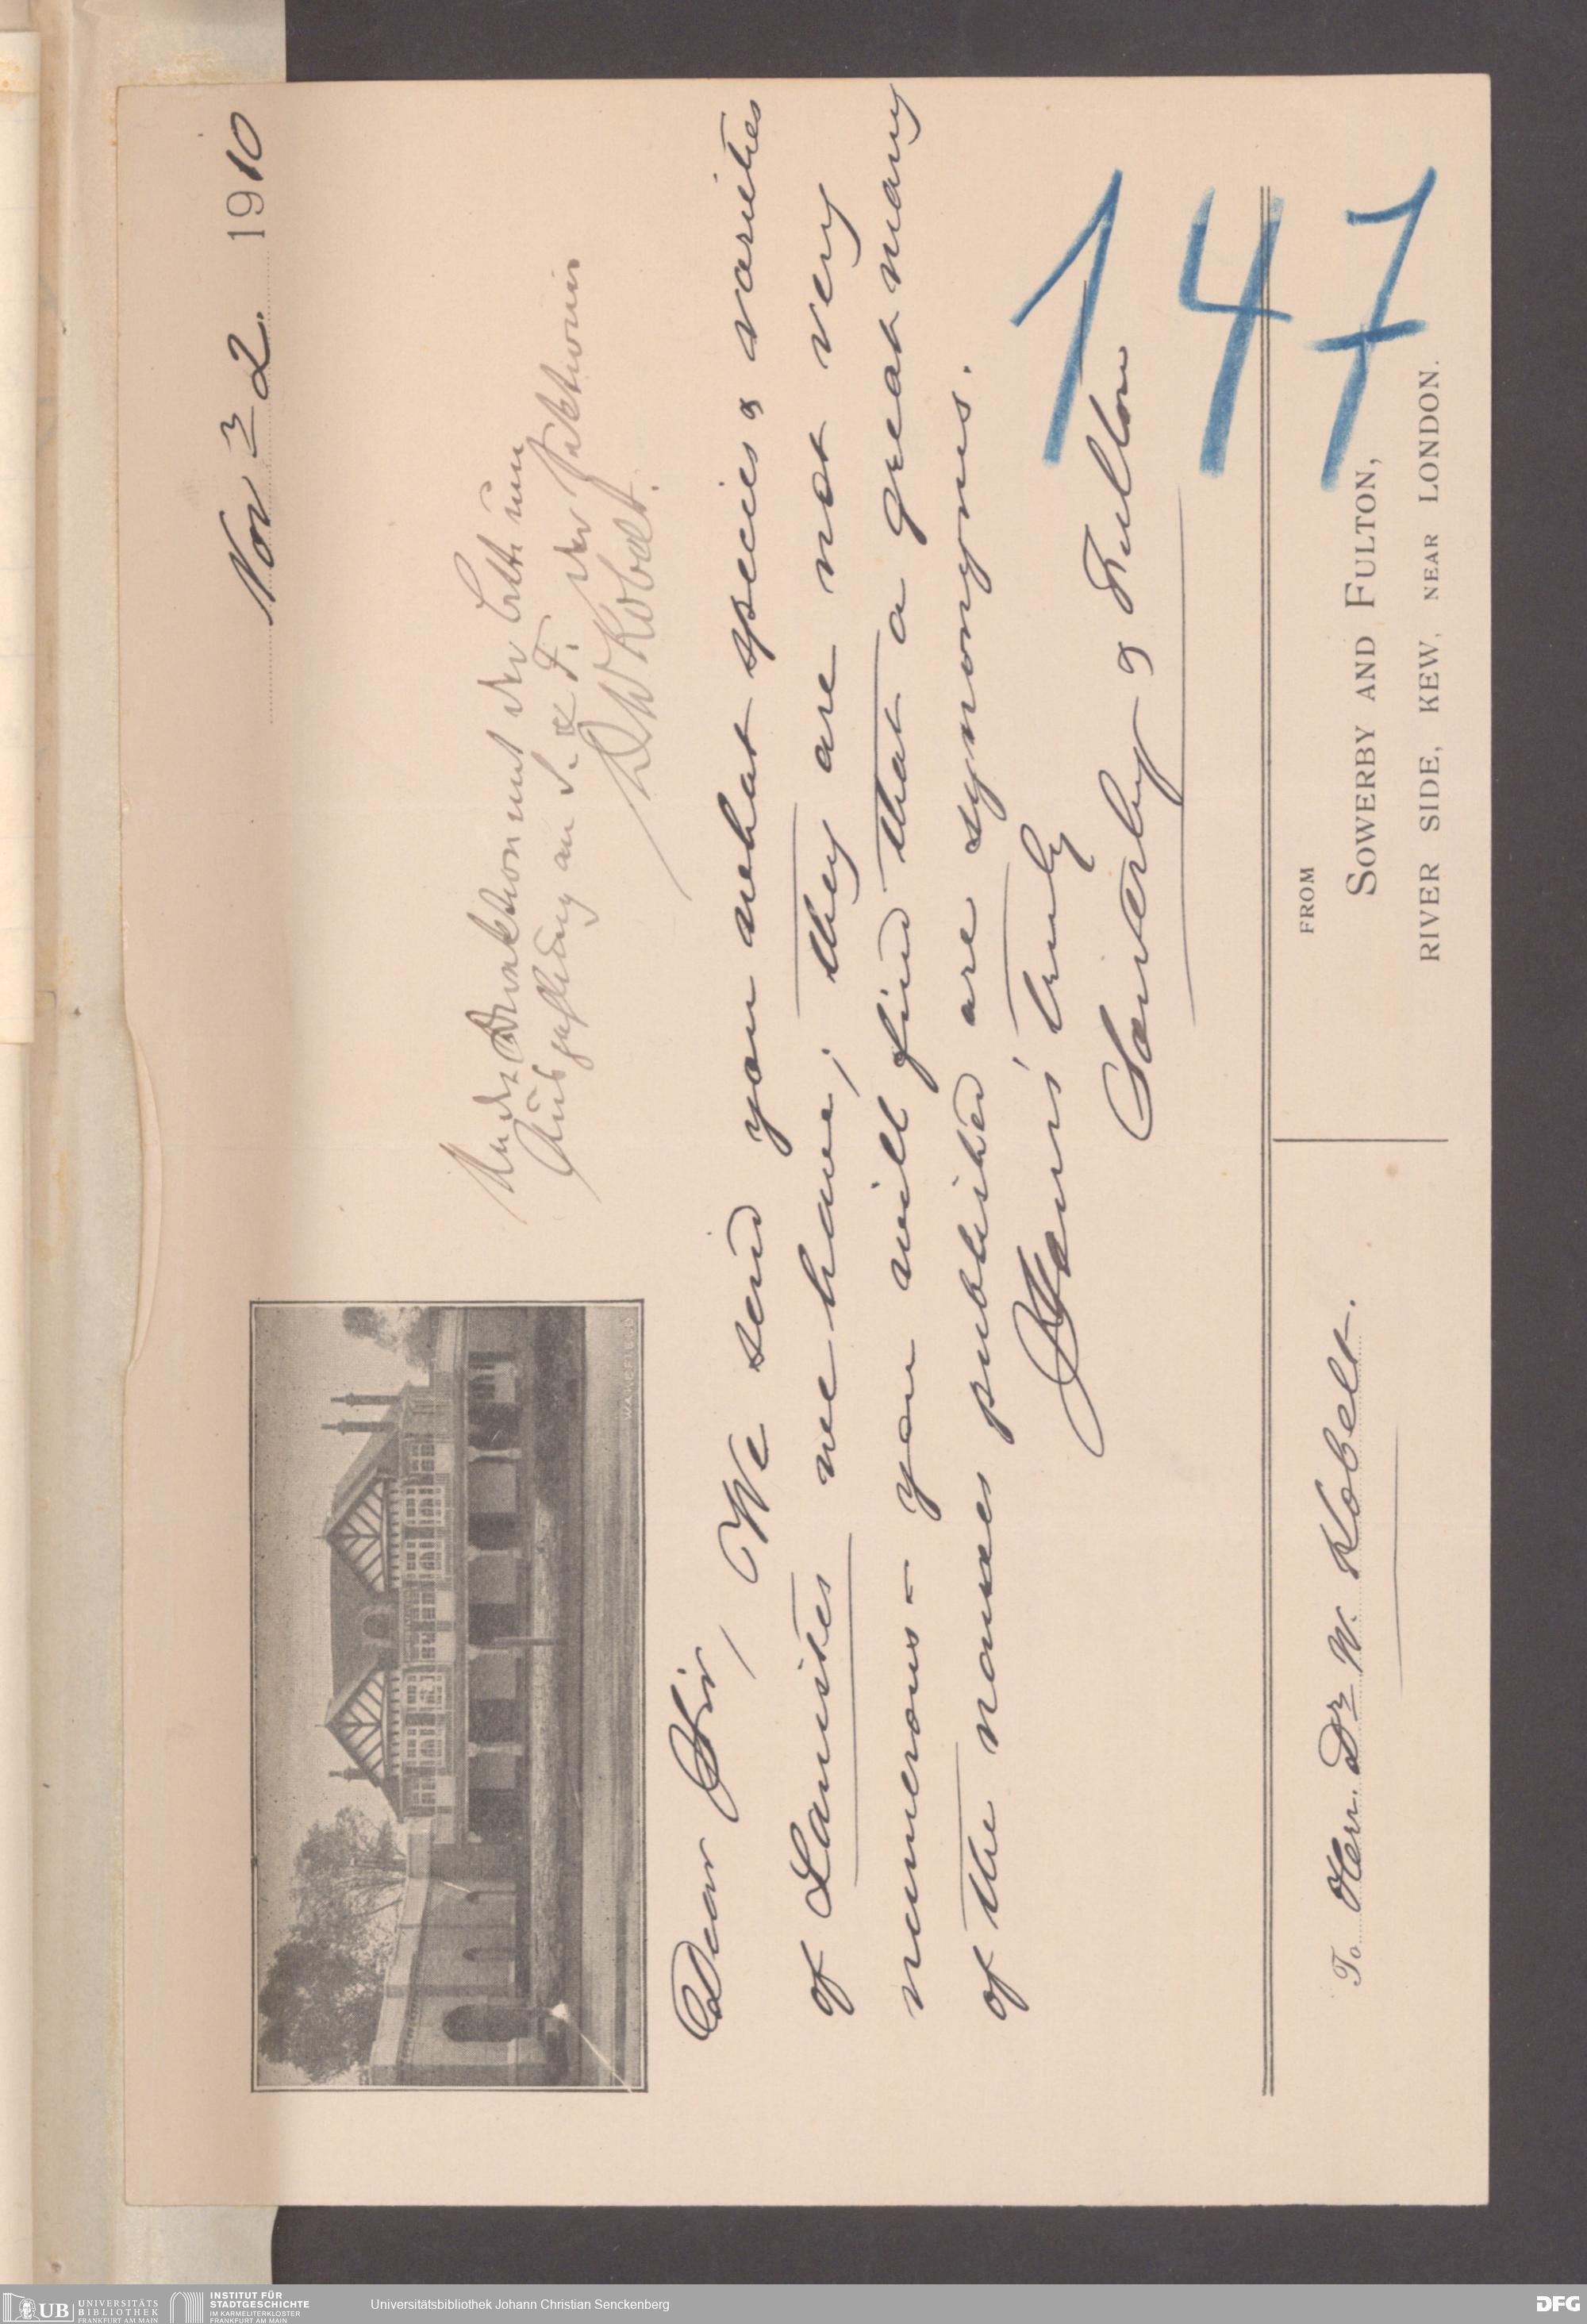 Nov r 2. 1910
An die Direktion mit der Bitte um
an S. & F. der Sektionär
Dr W Kobelt.
Dear Sir,
We send you what species & varieties
of Lanistes we have; they are not very
numerous - you will find that a great many
of the names published are synonyms.
Yours truly
Sowerby & Fulton
147
To Herr. Dr W. Kobelt.
FROM
SOWERBY AND FULTON,
RIVER SIDE, KEW, NEAR LONDON.
UB UNIVERSITÄTS
BIBLIOTHEK
FRANKFURT AM MAIN
INSTITUT FÜR
STADTGESCHICHTE
IM KARMELITERKLOSTER
FRANKFURT AM MAIN
Universitätsbibliothek Johann Christian Senckenberg
DFG